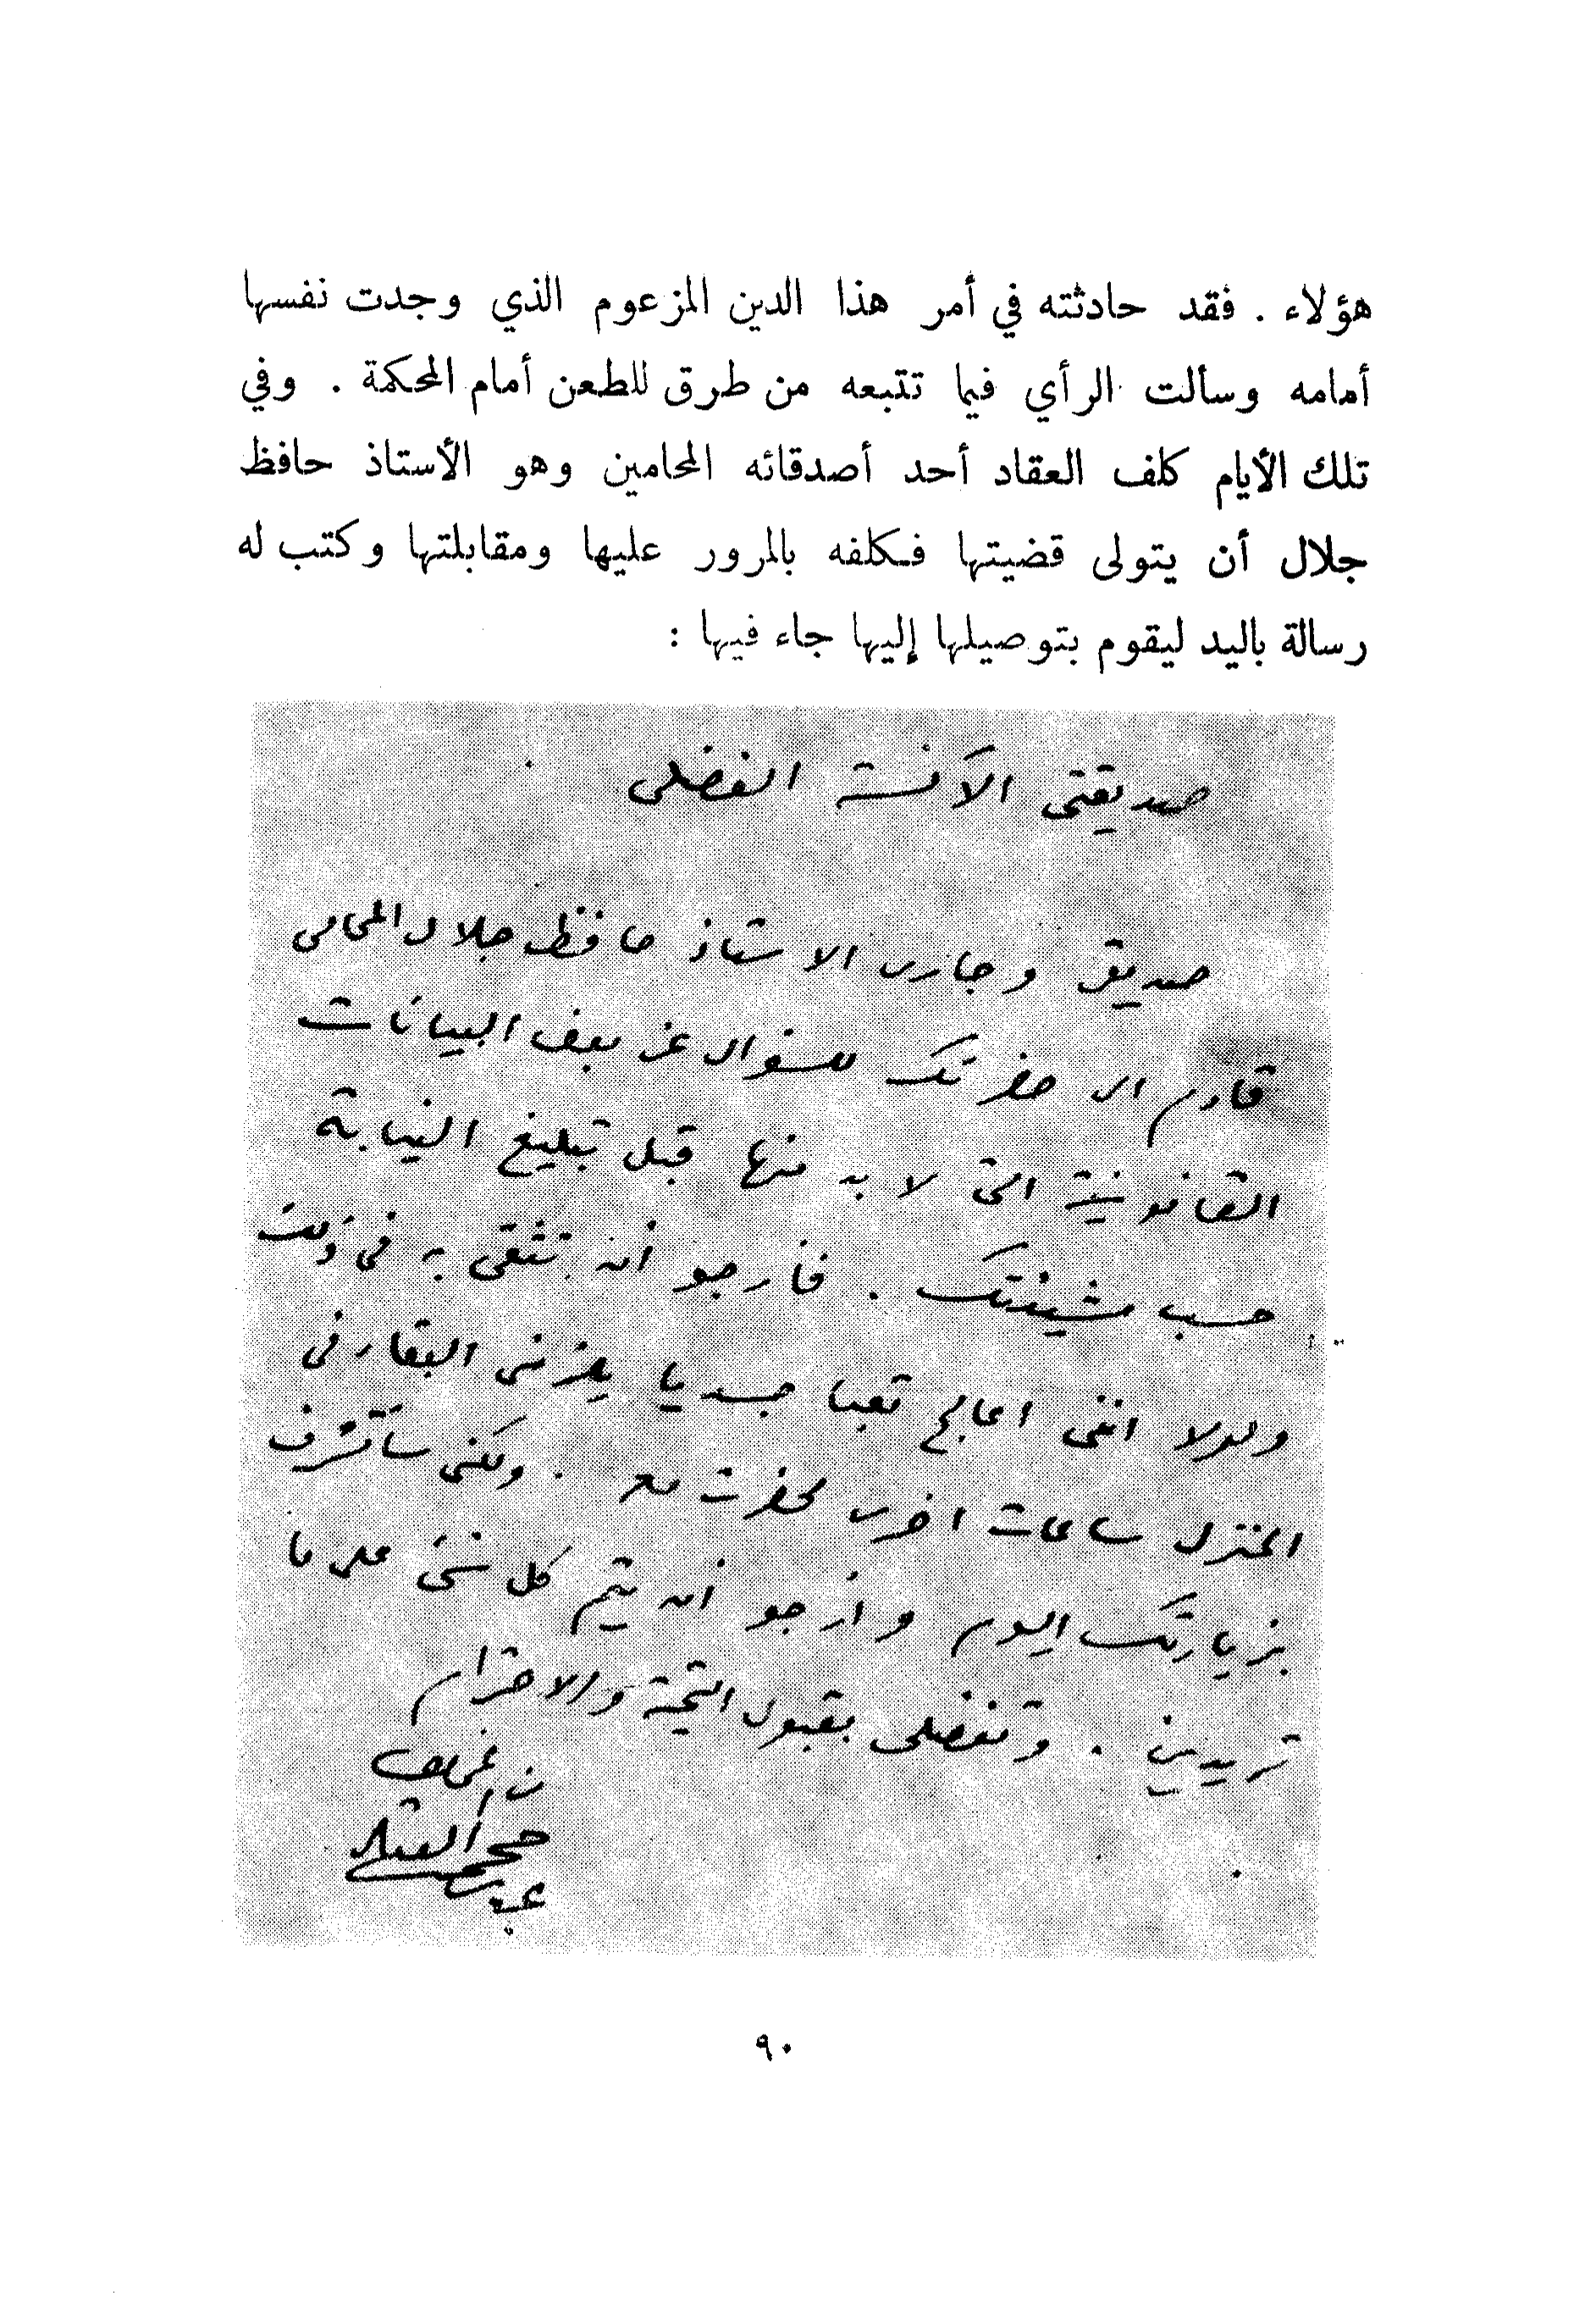 هؤلاء . فقد حادثته في أمر هذا الدين المزعوم الذي وجدت نفسها
أمامه وسألت الرأي فيما تتبعه من طرق للطعن أمام المحكمة . وفي
تلك الأيام كلف العقاد أحد أصدقائه المحامين وهو الأستاذ حافظ
جلال أن يتولى قضيتها فكلفه بالمرور عليها ومقابلتها وكتب له
رسالة باليد ليقوم بتوصيلها إليها جاء فيها :
صديقتى الآنسة الفضلى
صديقى وجارى الاستاذ حافظ جلال المحامى
قادم الى حضرتك للسؤال عن بعض البيانات
القانونية التى لا بد منها قبل تبليغ النيابة
حسب مشيئتك . فأرجو أن تثقى به فى
ولولا اننى اعالج تعبا جسديا يلزمنى البقاء فى
المنزل ساعات اخرى لحضرت معه . ولكنى سأتشرف
بزيارتك اليوم وأرجو أن يتم كل شىء على ما
تريدين . وتفضلى بقبول التحية والاحترام
من المخلص
عباس محمود العقاد
٩٠